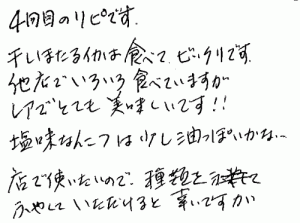 4回目のリピです。
干しほたるイカは食べて、ビックリです。
他店でいろいろ食べていますが
レアでとても美味しいです!!
塩味なんこつは少し油っぽいかな…
店で使いたいので、種類を
ふやしていただけると幸いですが